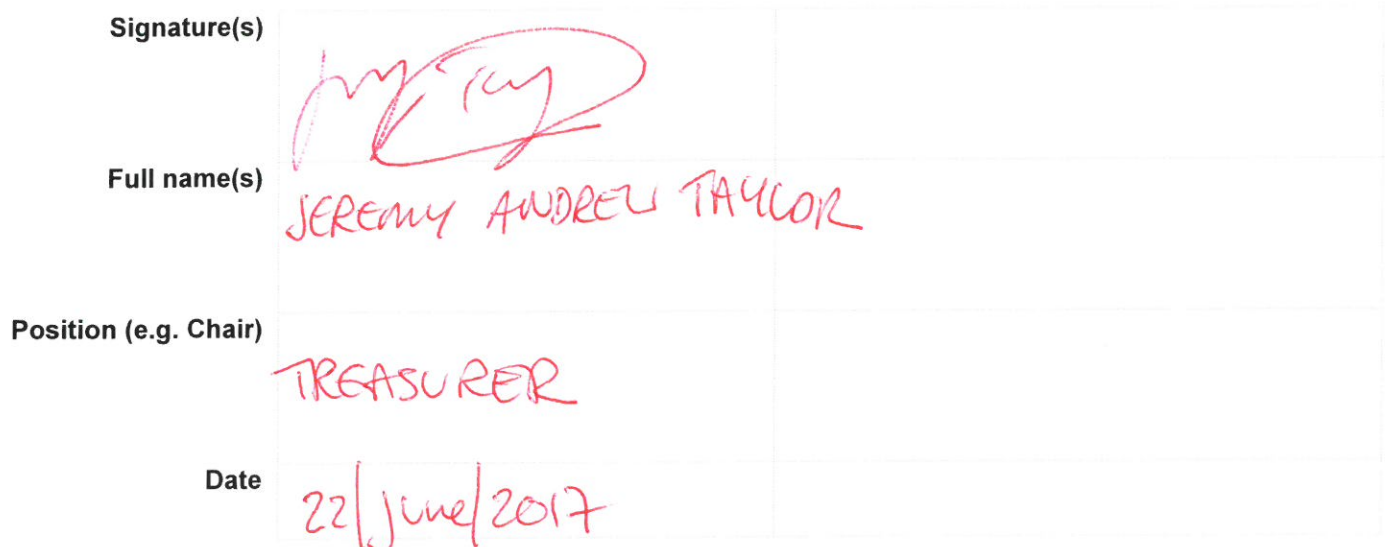 Signature(s)
Full name(s)
JEREMY ANDREW TAYLOR
Position (e.g. Chair)
TREASURER
Date
22/June/2017